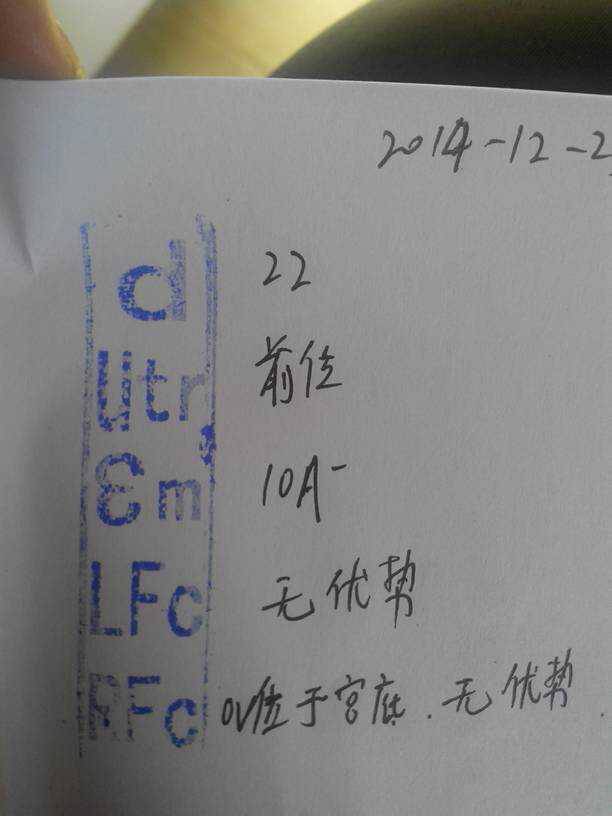 2014-12-2
d 22
Utr 前位
Em 10A-
LFc 无优势
RFc OV位于宫底.无优势.